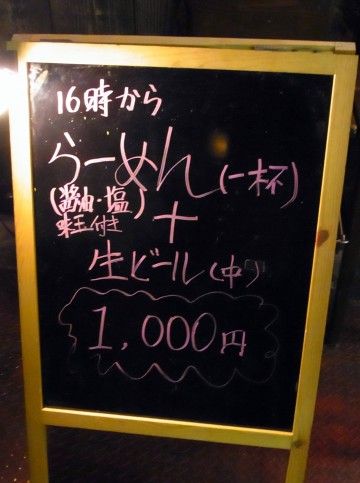 16時から
らーめん(一杯)
(醤油・塩)
味玉付き
＋
生ビール(中)
1,000円